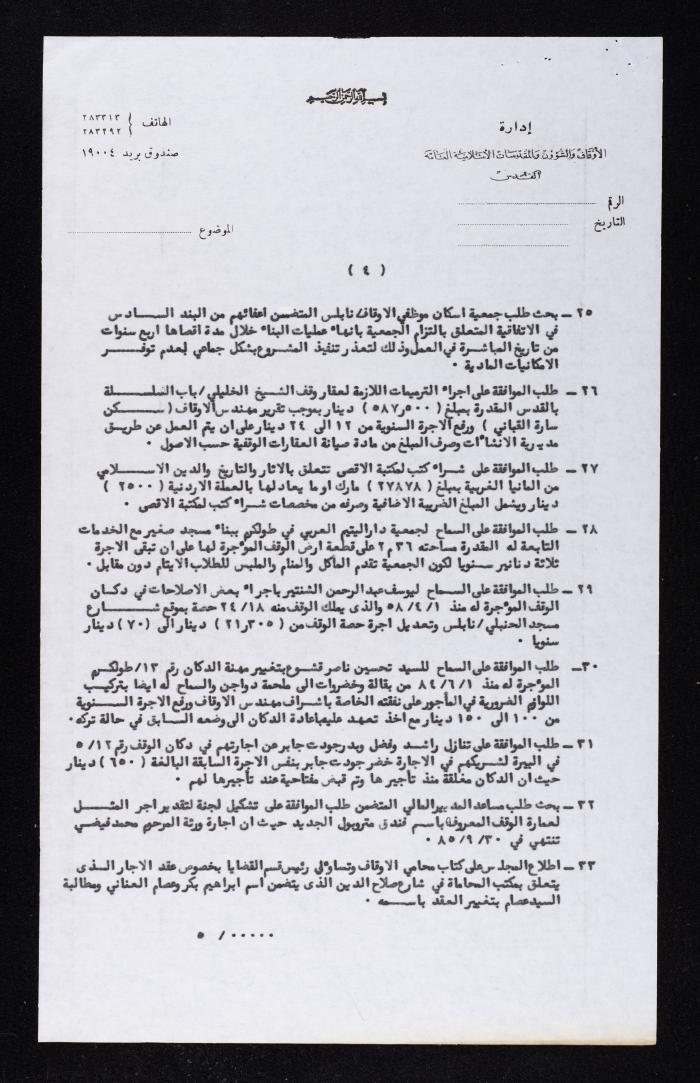 بسم الله الرحمن الرحيم
إدارة
الأوقاف والشؤون والمقدسات الإسلامية العامة
القدس
الهاتف { ٢٨٣٣١٣
٢٨٣٢٩٢
صندوق بريد ١٩٠٠٤
الرقم
التاريخ
الموضوع
( ٤ )
٢٥ ــ بحث طلب جمعية اسكان موظفي الاوقاف/ نابلس المتضمن اعفائهم من البند الســادس
في الاتفاقية المتعلق بالتزام الجمعية بانهاء عمليات البناء خلال مدة اقصاها اربع سنوات
من تاريخ المباشرة في العمل وذلك لتعذر تنفيذ المشروع بشكل جماعي لعدم توفــر
الامكانيات المادية .
٢٦ ــ طلب الموافقة على اجراء الترميمات اللازمة لعقار وقف الشيخ الخليلي / باب السلسلة
بالقدس المقدرة بمبلغ ( ٥٠٠ر٥٨٧ ) دينار بموجب تقرير مهندس الاوقاف ( ســكن
سارة القباني ) ورفع الاجرة السنوية من ١٢ الى ٢٤ دينار على ان يتم العمل عن طريــق
مديرية الانشاءات وصرف المبلغ من مادة صيانة العقارات الوقفية حسب الاصول .
٢٧ ــ طلب الموافقة على شراء كتب لمكتبة الاقصى تتعلق بالاثار والتاريخ والدين الاســلامي
من المانيا الغربية بمبلغ ( ٢٧٨٧٨ ) مارك او ما يعادلها بالعملة الاردنية ( ٢٥٠٠ )
دينار ويشمل المبلغ الضريبة الاضافية وصرفه من مخصصات شراء كتب لمكتبة الاقصى .
٢٨ ــ طلب الموافقة على السماح لجمعية دار اليتيم العربي في طولكرم ببناء مسجد صغير مع الخدمات
التابعة له المقدرة مساحته ٣٦ م٢ على قطعة ارض الوقف المؤجرة لها على ان تبقى الاجرة
ثلاثة دنانير سنويا لكون الجمعية تقدم المأكل والمنام والملبس للطلاب الايتام دون مقابل .
٢٩ ــ طلب الموافقة على السماح ليوسف عبد الرحمن الشنتير باجراء بعض الاصلاحات في دكان
الوقف المؤجرة له منذ ٥٨/٤/١ والذى يملك الوقف منه ٢٤/١٨ حصة بموقع شــارع
مسجد الحنبلي / نابلس وتعديل اجرة حصة الوقف من ( ٣٠٥ر٢١ ) دينار الى ( ٧٠ ) دينار
سنويا .
٣٠ــ طلب الموافقة على السماح للسيد تحسين ناصر قشوع بتغيير مهنة الدكان رقم ١٣/ طولكــرم
المؤجرة له منذ ٨٤/٦/١ من بقالة وخضروات الى ملحمة دواجن والسماح له ايضا بتركيــب
اللوازم الضرورية في المأجور على نفقته الخاصة باشراف مهندس الاوقاف ورفع الاجرة الســنوية
من ١٠٠ الى ١٥٠ دينار مع اخذ تعهد عليه باعادة الدكان الى وضعه السابق في حالة تركه.
٣١ ــ طلب الموافقة على تنازل راشد وفضل وبدر جودت جابر عن اجارتهم في دكان الوقف رقم ٥/١٢
في البيرة لشريكهم في الاجارة خضر جودت جابر بنفس الاجرة السابقة البالغة ( ٦٥٠ ) دينار
حيث ان الدكان مغلقة منذ تأجيرها وتم قبض مفتاحية عند تأجيرها لهم .
٣٢ ــ بحث طلب مساعد المدير المالي المتضمن طلب الموافقة على تشكيل لجنة لتقدير اجر المثــل
لعمارة الوقف المعروفة باسم فندق متروبول الجديد حيث ان اجارة ورثة المرحوم محمد فيضي
تنتهي في ٨٥/٩/٣٠ .
٣٣ ــ اطلاع المجلس على كتاب محامي الاوقاف رئيس قسم القضايا بخصوص عقد الاجار الــذى
يتعلق بمكتب المحاماة في شارع صلاح الدين الذى يتضمن اسم ابراهيم بكر وعصام العناني ومطالبة
السيد عصام بتغيير العقد باســمه .
٥ /.....